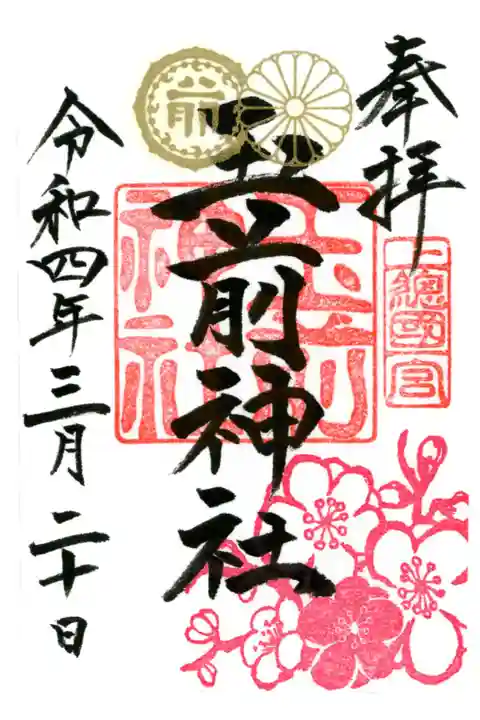 奉拝
上総國一宮
玉前神社
玉前神社
前
令和四年三月二十日